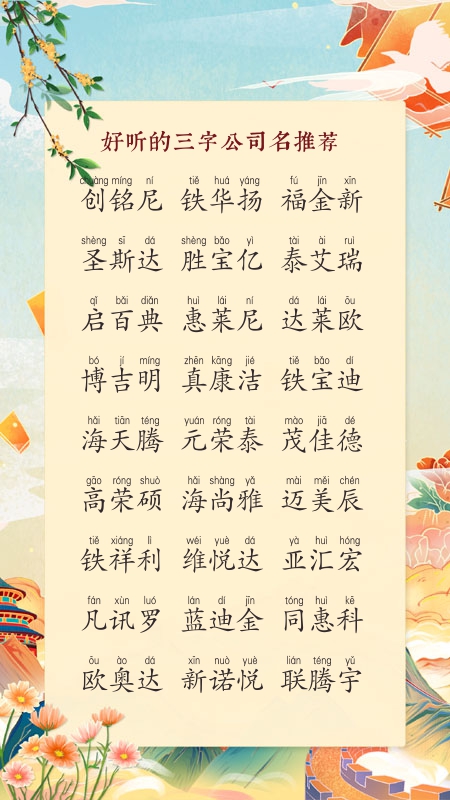 好听的三字公司名推荐
chuàng míng ní tiě huá yáng fú jīn xīn
创铭尼 铁华扬 福金新
shèng sī dá shèng bǎo yì tài ài ruì
圣斯达 胜宝亿 泰艾瑞
qǐ bǎi diǎn huì lái ní dá lái ōu
启百典 惠莱尼 达莱欧
bó jí míng zhēn kāng jié tiě bǎo dí
博吉明 真康洁 铁宝迪
hǎi tiān téng yuán róng tài mào jiā dé
海天腾 元荣泰 茂佳德
gāo róng shuò hǎi shàng yǎ mài měi chén
高荣硕 海尚雅 迈美辰
tiě xiáng lì wéi yuè dá yà huì hóng
铁祥利 维悦达 亚汇宏
fán xùn luó lán dí jīn tóng huì kē
凡讯罗 蓝迪金 同惠科
ōu ào dá xīn nuò yuè lián téng yǔ
欧奥达 新诺悦 联腾宇